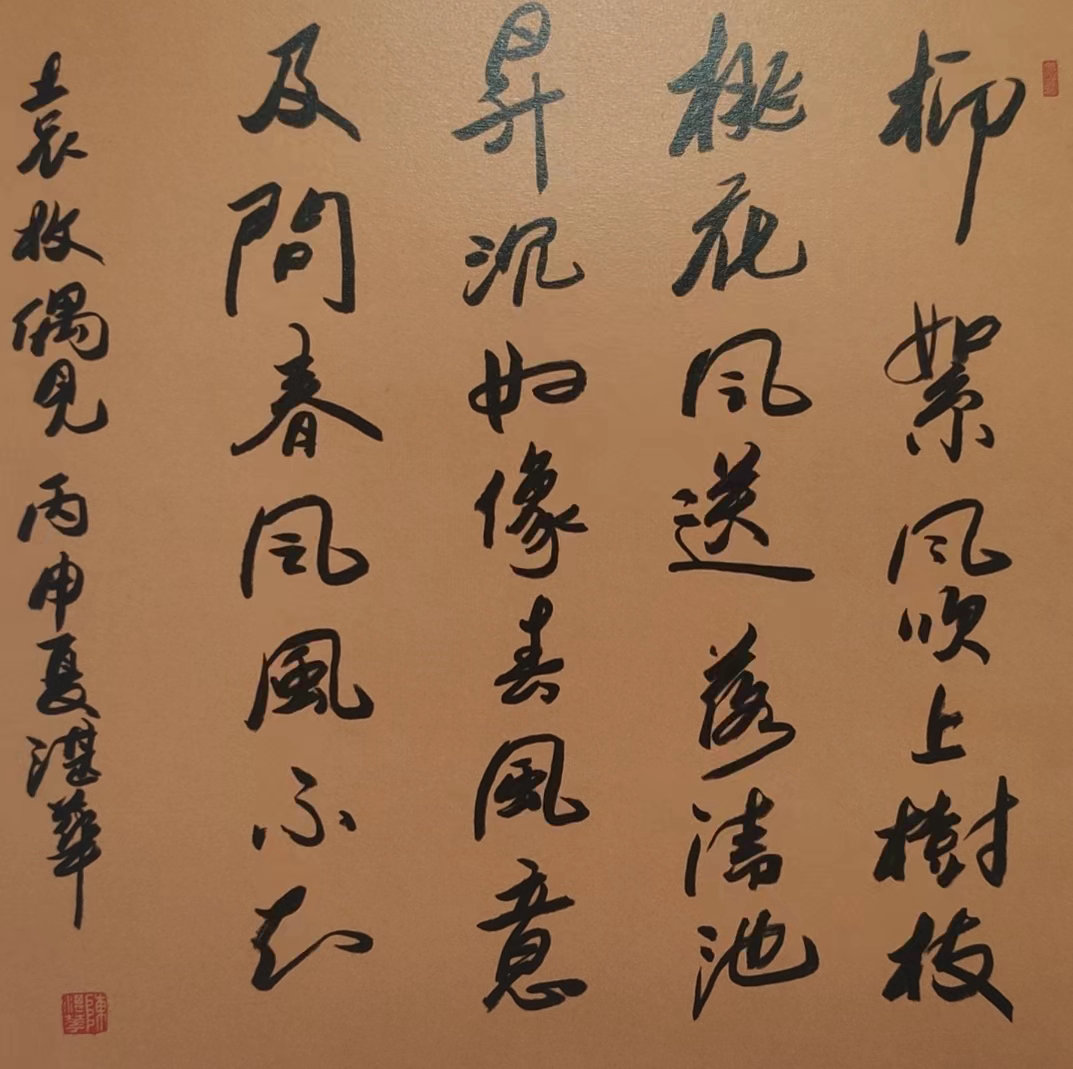 柳絮風吹上樹枝
桃花風送落清池
昇沉好像春風意
及問春風風不知
袁枚偶見 丙申夏湛華